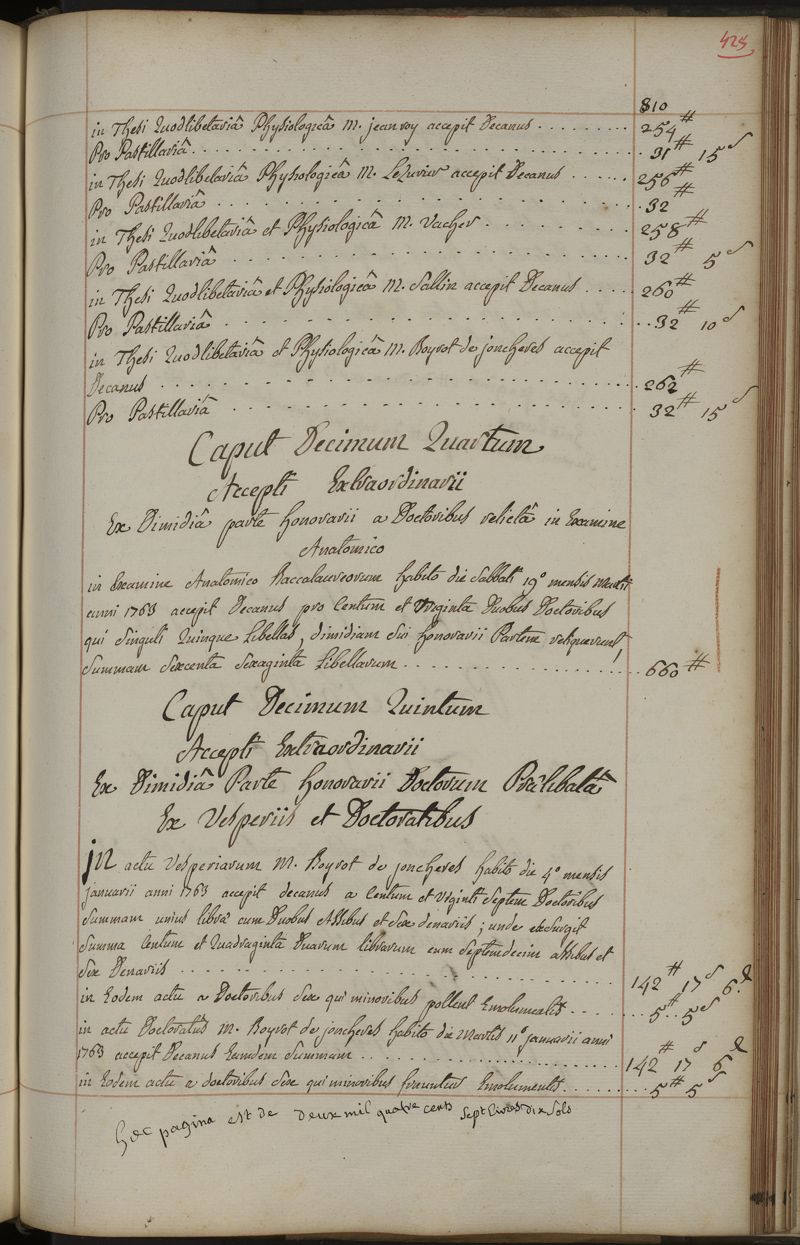 425
810
in Thesi Quodlibetariâ Physiologicâ M. jeanroy accepit Decanus ........ 254#
Pro Pastillariâ ........ 31# 15s
in Thesi Quodlibetariâ Physiologicâ M. LeZurier accepit Decanus ...... 256#
Pro Pastillariâ ........ 32#
in Thesi Quodlibetariâ et Physiologicâ M. Vacher ........ 258#
Pro Pastillariâ ........ 32# 5s
in Thesi Quodlibetariâ et Physiologicâ M. Sallin accepit Decanus ..... 260#
Pro Pastillariâ ........ 32# 10s
in Thesi Quodlibetariâ et Physiologicâ M. Boyrot de joncheres accepit
Decanus ........ 262#
Pro Pastillariâ ........ 32# 15s
Caput Decimum Quartum
Accepti Extraordinarii
Ex Dimidiâ parte honorarii a Doctoribus relictâ in Examine
Anatomico
in Examine Anatomico Baccalaureorum habito die Sabbati 19° mensis Martii
anni 1763 accepit Decanus pro Centum et triginta Duobus Doctoribus
qui Singuli Quinque Libellas, dimidiam Sui honorarii Partem reliquerunt,
Summam Sexcenta Sexaginta Libellarum ........ 660#
Caput Decimum Quintum
Accepti Extraordinarii
Ex Dimidiâ Parte honorarii Doctorum Prælibatâ
Ex Vesperiis et Doctoratibus
jn actu Vesperiarum M. Boyrot de joncheres habito die 4° mensis
januarii anni 1763 accepit decanus a Centum et Viginti Septem Doctoribus
Summam unius libræ cum Duobus Assibus et Sex denariis; unde exsurgit
Summa Centum et Quadraginta Duarum librarum cum Septemdecim assibus et
Sex Denariis ........ 142# 17s 6d
in Eodem actu a Doctoribus Sex qui minoribus pollent Emolumentis ........ 5# 5s
in actu Doctoratûs M. Boyrot de joncheres habito die Martis 11° januarii anni
1763 accepit Decanus Eamdem Summam ........ 142# 17s 6d
in Eodem actu a doctoribus Sex qui minoribus fruuntur Emolumentis ........ 5# 5s
hæc pagina est de deux mil quatre cents Sept livres dix Sols